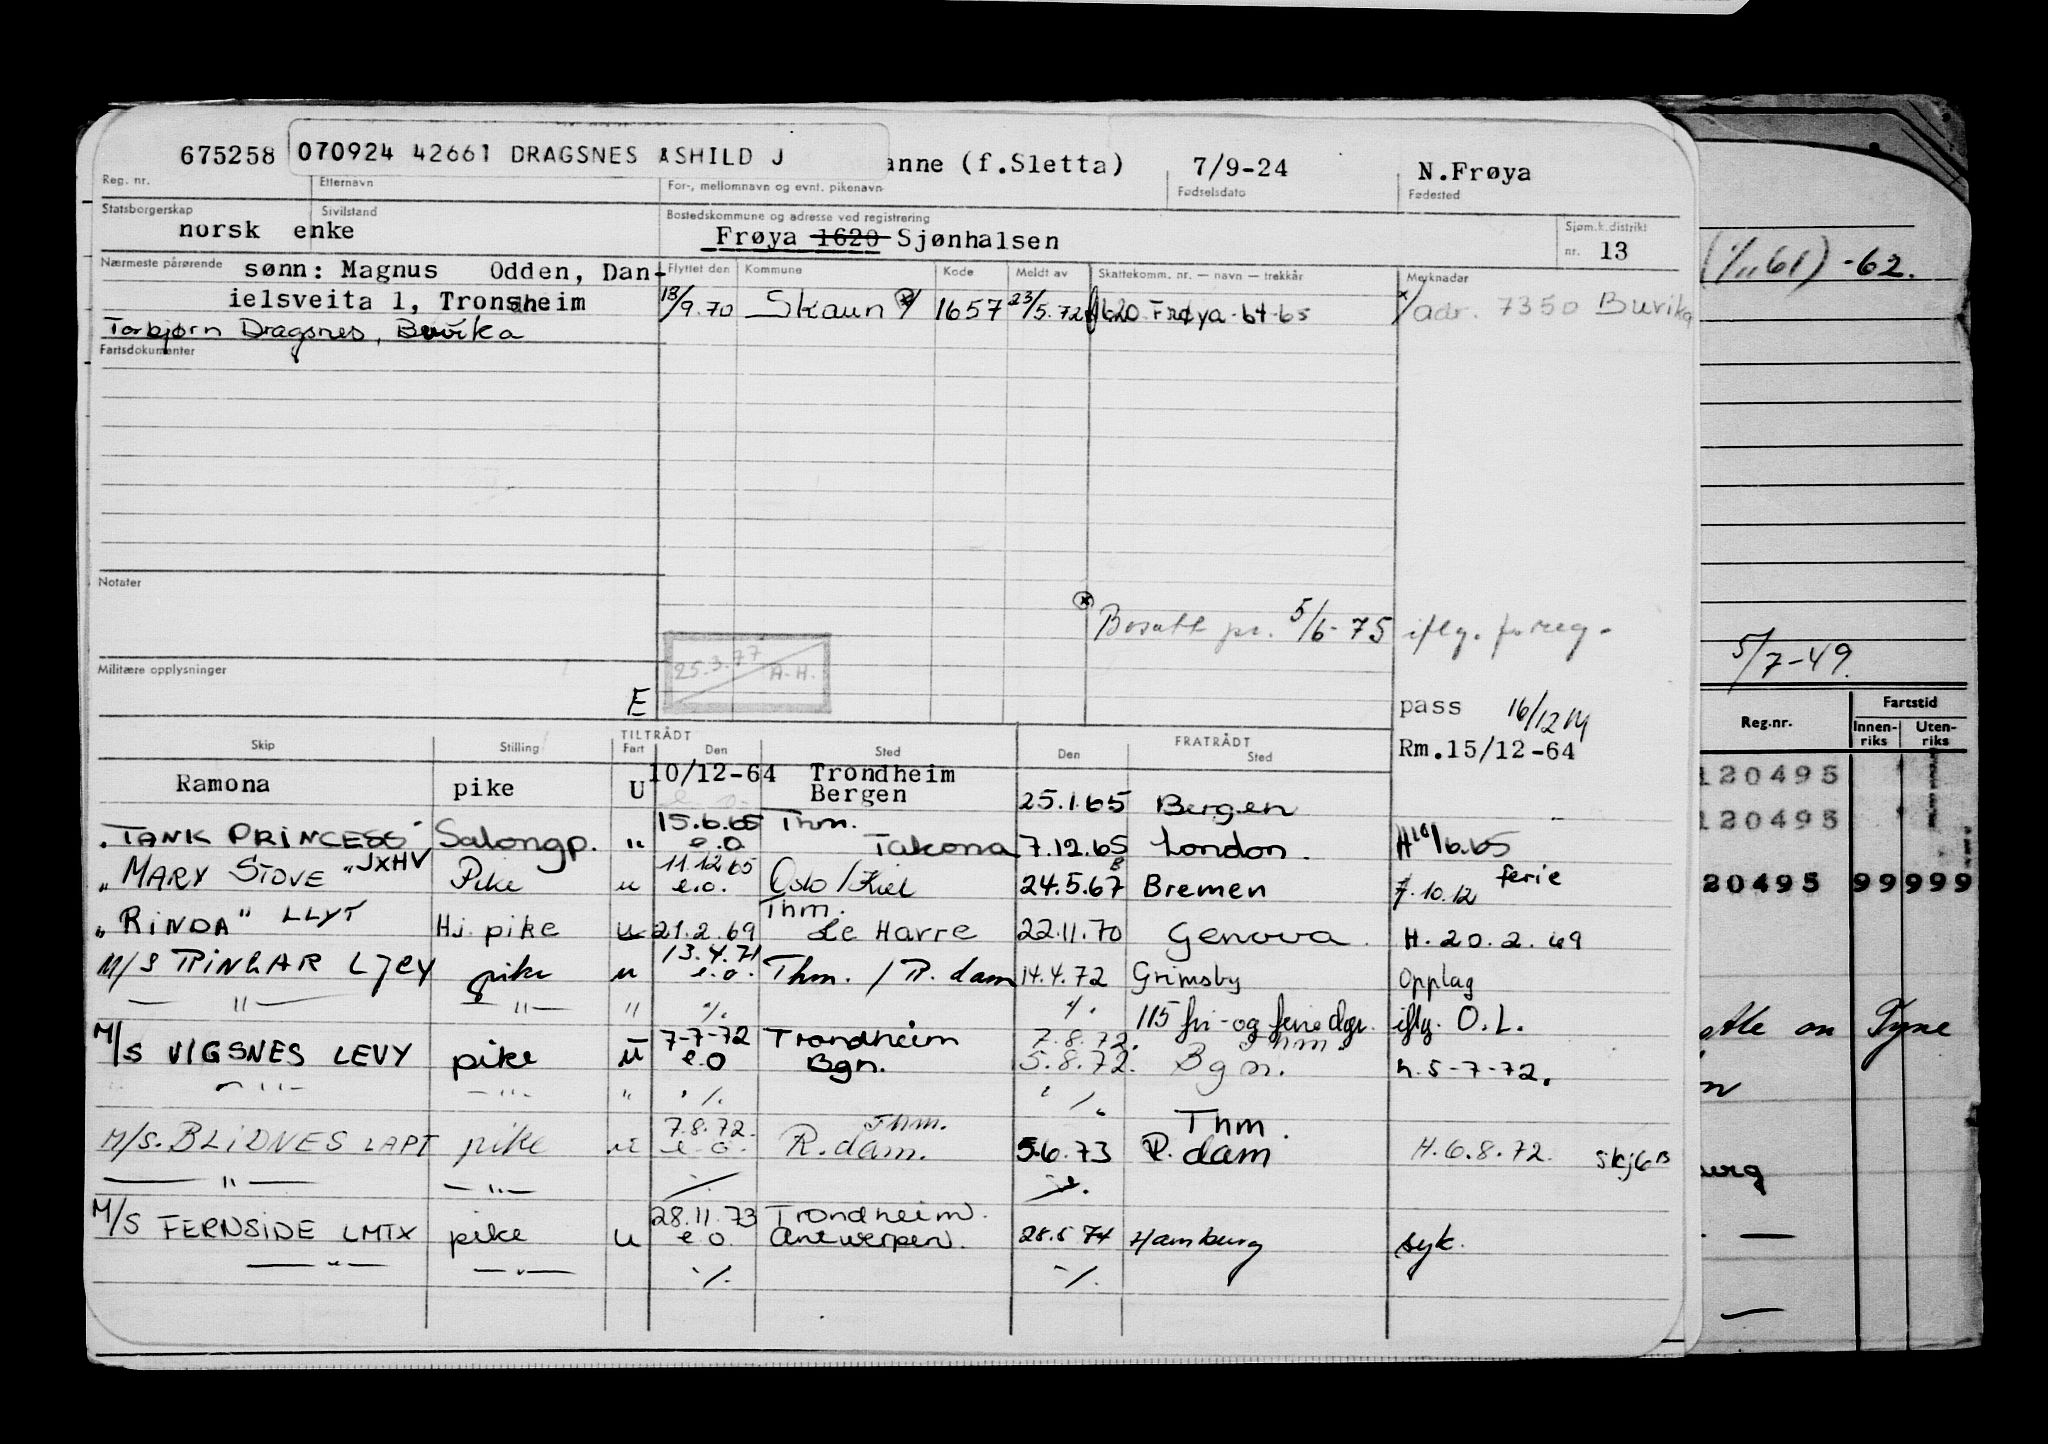 675258 070924 42661 DRAGSNES ASHILD J anne (f.Sletta) 7/9-24 N.Frøya
Reg. nr. Etternavn For-, mellomnavn og evnt. pikenavn Fødselsdato Fødested
Statsborgerskap Sivilstand Bostedskommune og adresse ved registrering Sjøm.k.distrikt
norsk enke Frøya 1620 Sjønhalsen nr. 13
Nærmeste pårørende sønn: Magnus Odden, Dan-
ielsveita 1, Tronsheim
Torbjørn Dragsnes, Buvika
Flyttet den Kommune Kode Meldt av Skattekomm. nr. — navn — trekkår Merknader
13/9.70 Skaun 1657 23/5.72 1620 Frøya-64-65 x/adr. 7350 Buvika
Fartsdokumenter
Notater
Bosatt pr. 5/6-75 iflg. foreg.
25.3.77 A.H.
Militære opplysninger
E
pass 16/12 M
Rm.15/12-64
TILTRÅDT FRATRÅDT
Skip Stilling Fart Den Sted Den Sted
Ramona pike U 10/12-64 Trondheim
Bergen 25.1.65 Bergen
"TANK PRINCESS" Salongp. " 15.6.65 Thm.
e.o Takona 7.12.65 London. H10/6.65
"MARY STOVE" JXHV Pike u 11.12.65
e.o. Oslo/Kiel 24.5.67 Bremen 7.10.12 ferie
"RINDA" LLYT Hj. pike u 21.2.69 Thm.
Le Havre 22.11.70 Genova. H. 20.2.69
M/S RINGAR LJCY pike u 13.4.71
e.o. Thm. / R.dam 14.4.72 Grimsby Opplag
— " — — " — " %. %. 115 fri- og feriedgr. iflg. O.L.
M/S VIGSNES LEVY pike u 7-7-72 Trondheim 7.8.72. Thm
e.o Bgn. 5.8.72. Bgn. h.5-7-72.
— " — — " — " %. %.
M/S. BLIDNES LAPT pike u 7.8.72. Thm.
e.o. R.dam. 5.6.73 Thm.
R.dam H.6.8.72. skj6B
— " — — " — %. %.
M/S FERNSIDE LMTX pike u 28.11.73 Trondheim.
e.o. Antwerpen. 28.5 74 Hamburg syk.
— " — — " — %. %.
(1/11 61) -62.
5/7-49.
Reg.nr. Fartstid
Innen-riks Uten-riks
120495
120495
20495 99999
on Tyne